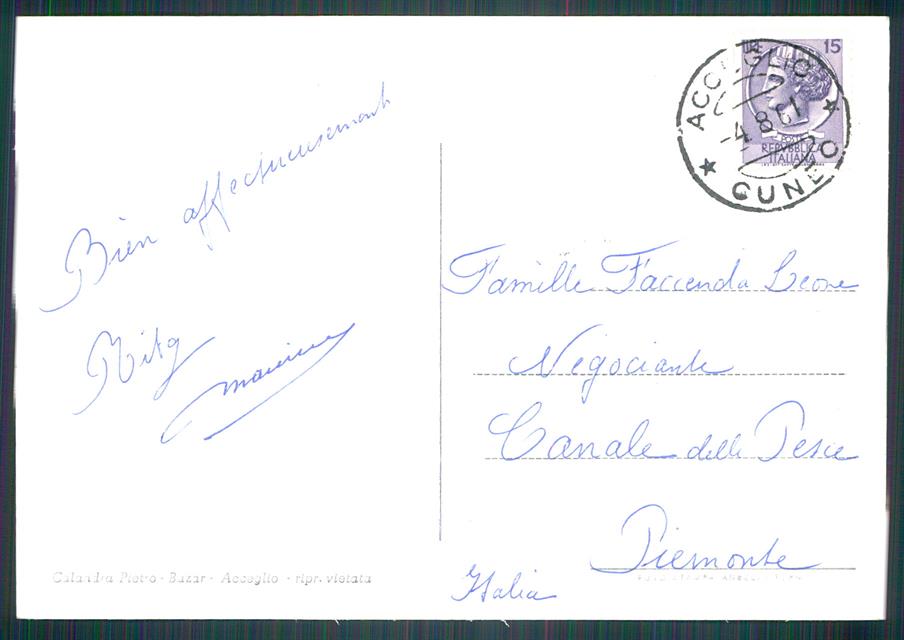 Bien affectueusement
Rita
Calandra Pietro - Bazar - Acceglio - ripr. vietata
ACCEGLIO
-4.8.61
CUNEO
15
POSTE
REPVBBLICA
ITALIANA
Famille Faccenda Leone
Negociante
Canale delle Pesce
Piemonte
Italia